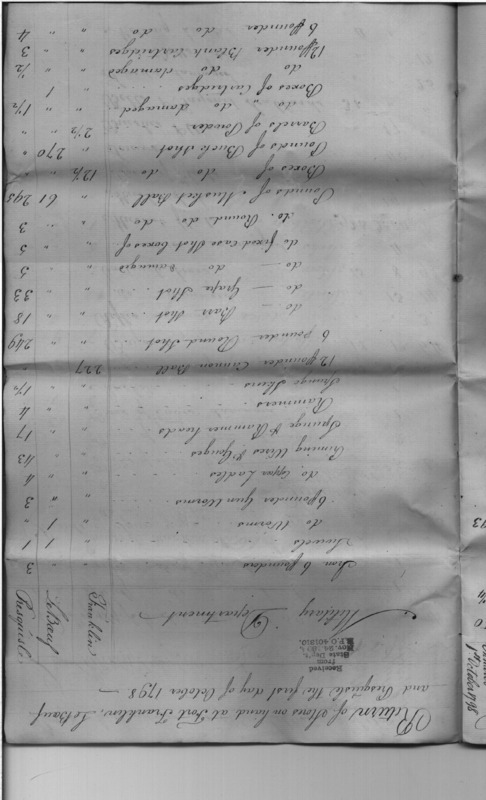 Return of Stores on hand at Fort Franklin, LeBœuf
and Presquisle the first day of October 1798 —
Received
from
State Dep't.
Nov. 24, 1874
Military Department
Franklin
LeBœuf
Presquisle
Iron 6 pounders " " 3
Swivels " 1 1
do Worms " 1 "
6 Pounder Gun Worms " " 3
do. Copper Ladles " " 4
Priming Wires & Gauges " " 43
Spunge & Rammer heads " " 17
Rammers " " 4
Spunge Skins " "
12 Pounder Cannon Ball 227 " "
6 pounder Round Shot " " 249
do — Barr Shot " " 18
do — Grape Shot " " 33
do — do damaged " " 5
do fixed case Shot boxes of " " 5
do. Round do do " " 3
Pounds of Musket Ball " 61 295
Boxes of do do 12½ " "
Pounds of Buck Shot " 270 "
Barrels of Powder 2½ " "
do do damaged " " 1½
Boxes of Cartridges " 1
do do damaged " " ½
12 Pounder Blank Cartridges " " 3
6 Pounder do do " " 4
1st October 1798